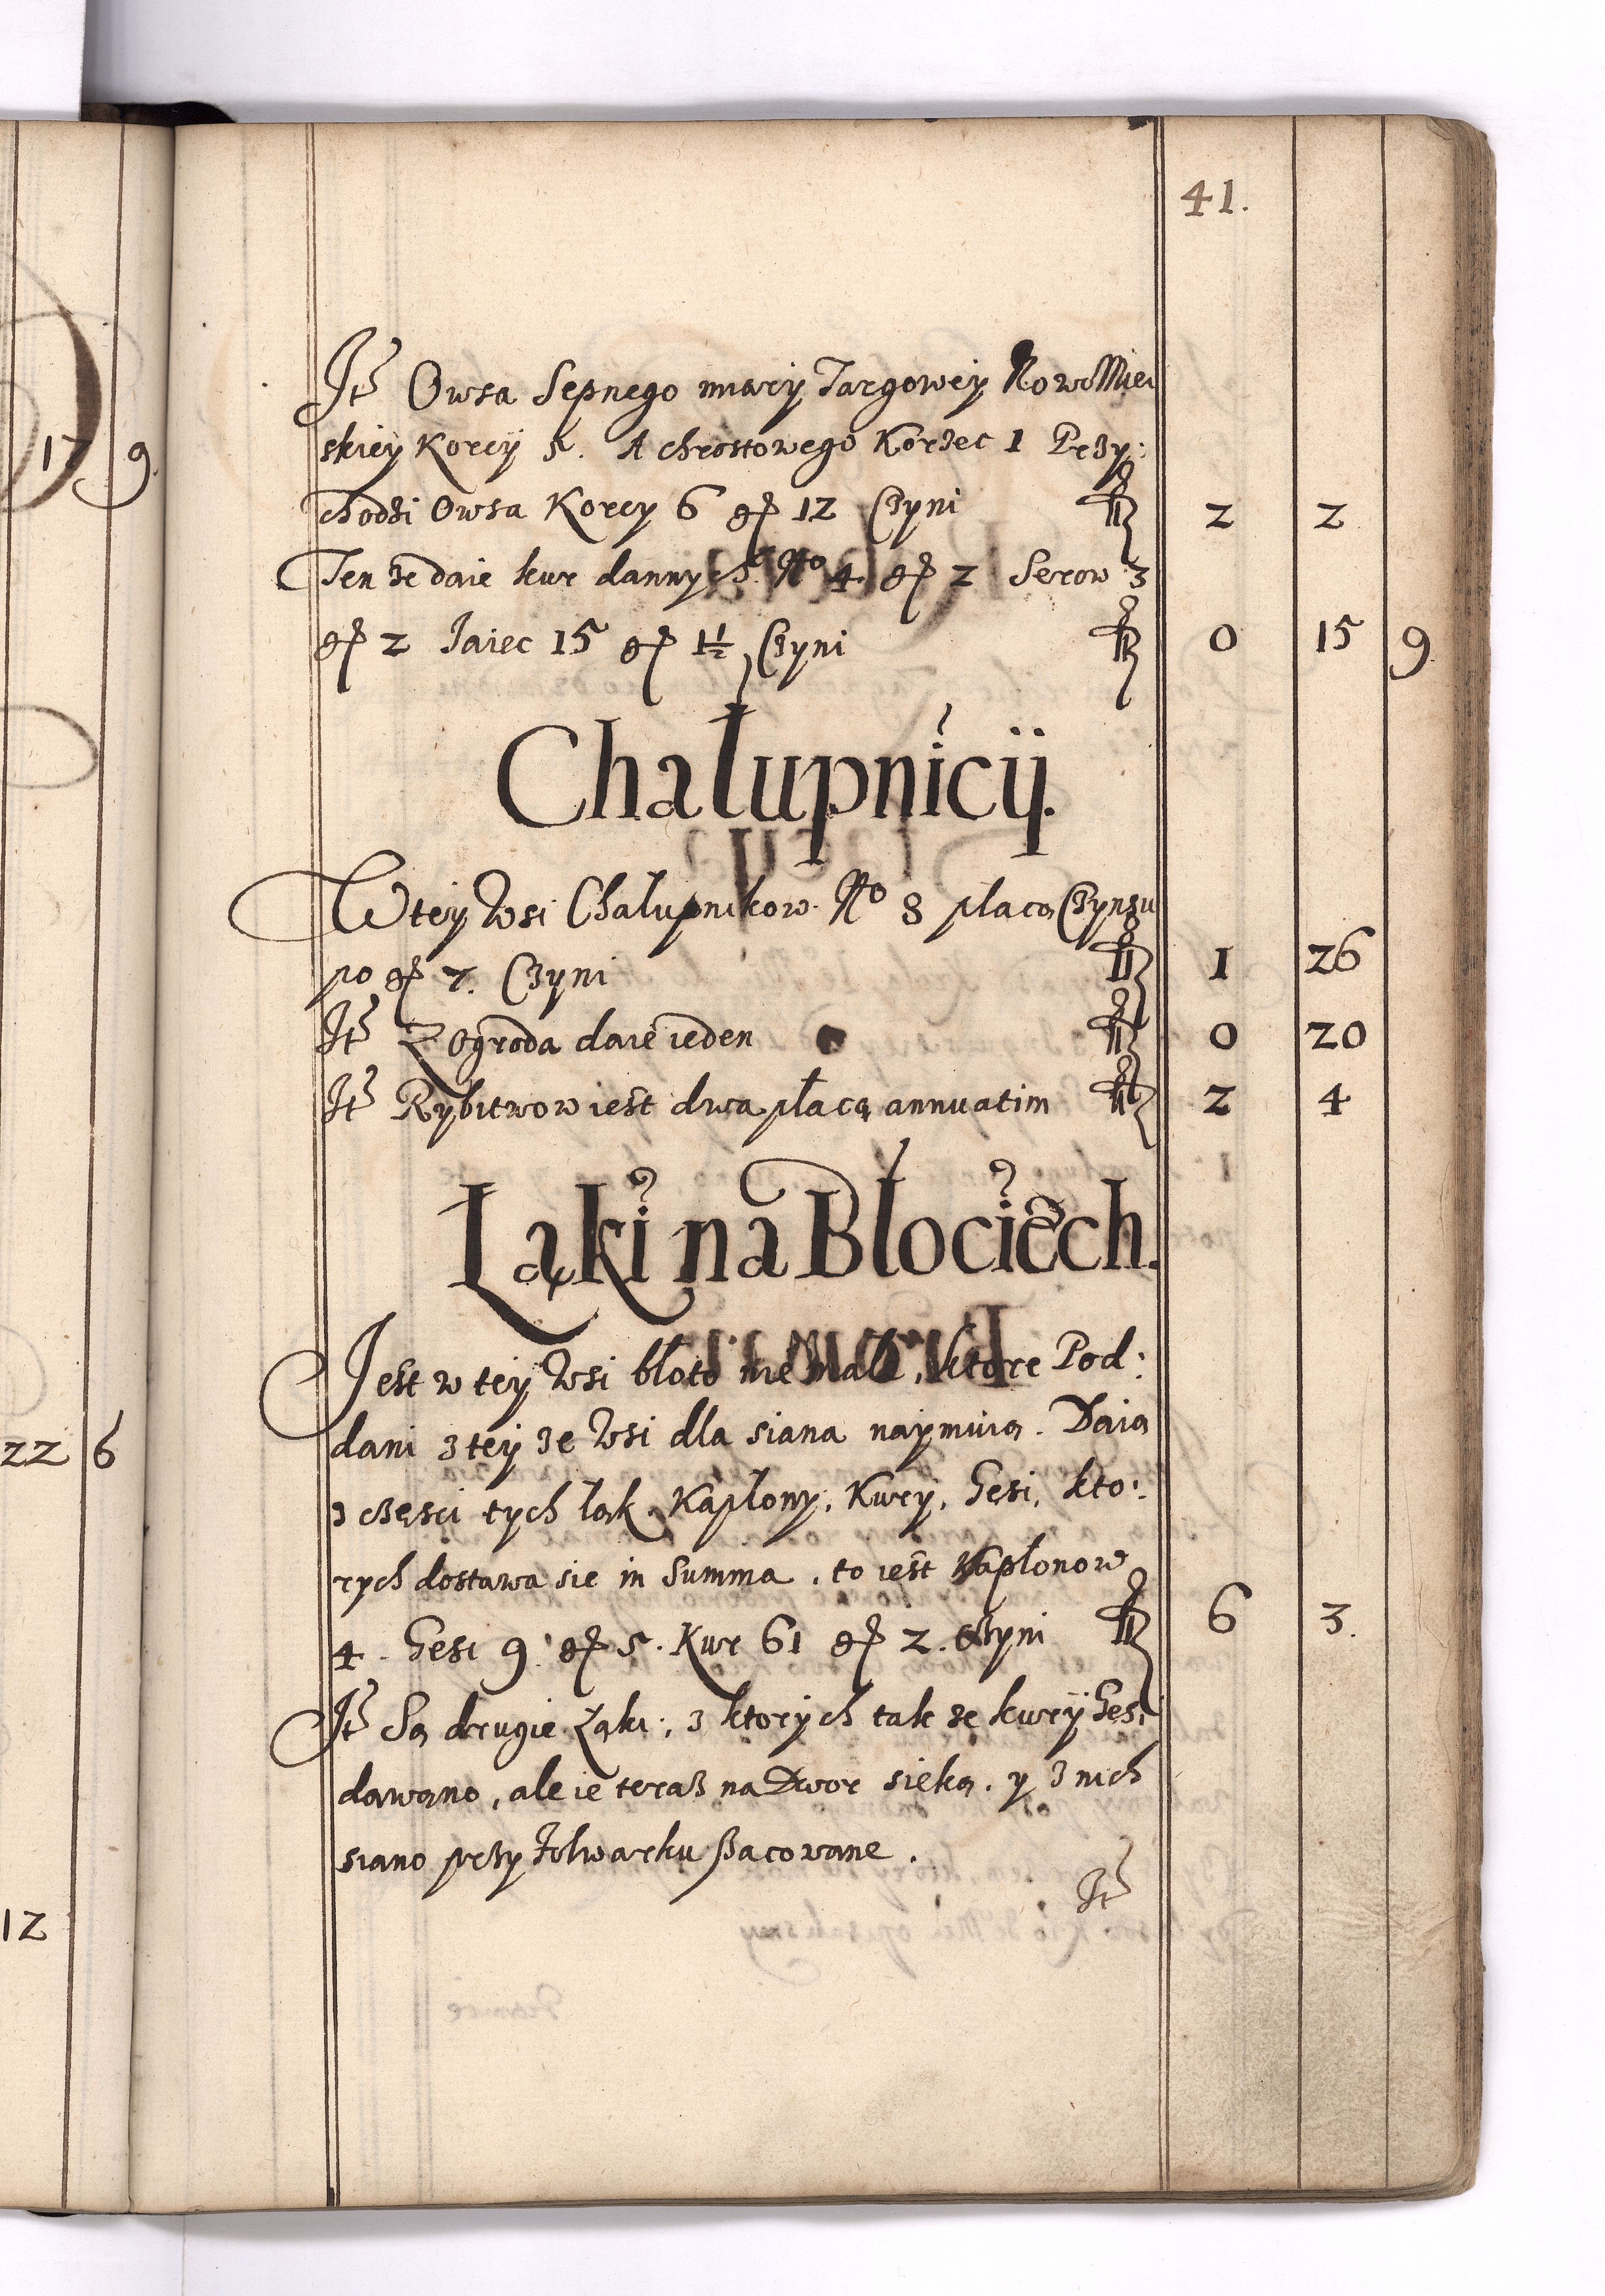 41.
Itē Owsa Sepnego miary Targowey NowoMiei
skiey Korcy 5. A chrostowego Korzec 1 Przy:
chodzi Owsa Korcy 6 gr 12 Czyni fl 2 2
Ten ze daie kur dannych No 4. gr 2 Serow 3
gr 2 Iaiec 15 gr 1½ Czyni fl 0 15 9
Chałupnicÿ.
W tey Wsi Chałupnikow No 8 płacą Czynszu
po gr 7. Czyni fl 1 26
Itē Z Ogroda daie ieden fl 0 20
Itē Rybitwow iest dwa płacą annuatim fl 2 4
Łąki na Błociech.
Iest w tey Wsi błoto nie małe, ktore Pod:
dani z tey ze Wsi dla siana naymuią. Daią
z części tych łąk, Kapłony, Kury, Gęsi, kto:
rych dostawa sie in Summa, to iest Kapłonow
4. Gęsi 9 gr 5. Kur 61 gr 2. Czyni fl 6 3.
Itē Są drugie Łąki, z ktorych tak ze kury Gęsi
dawano, ale ie teraz na Dwor sieką, y z nich
siano przy folwarku szacowane.
Itē
17 9.
22 6
12